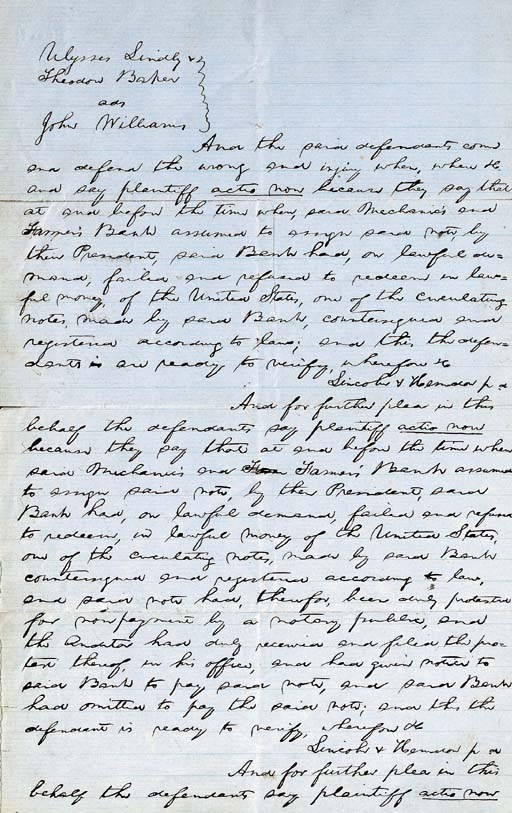 Ulysses Lindly &
Theodore Baker
ads
John Williams
And the said defendants come
and defend the wrong and injury when, where &c
and say plaintiff actio non because they say that
at and before the time when said Mechanic's and
Farmer's Bank assumed to assign said note, by
their President, said Bank had, on lawful de-
mand, failed and refused to redeem in law-
ful money, of the United States, one of the circulating
notes, made by said Bank, countersigned and
registered according to law; and this the defen-
dants is are ready to verify, wherefore &c
Lincoln & Herndon p d
And for further plea in this
behalf the defendants say plaintiff actio non
because they say that at and before the time when
said Mechanic's and Farmer's Bank assumed
to assign said note, by their President, said
Bank had, on lawful demand, failed and refused
to redeem, in lawful money of the United States,
one of the circulating notes, made by said Bank
countersigned and registered according to law,
and said note had, therefor, been duly protested
for non payment by a notary public, and
the Auditor had duly received and filed the pro-
test thereof, in his office, and had given notice to
said Bank to pay said note, and said Bank
had omitted to pay the said note; and this the
defendant is ready to verify, wherefore &c
Lincoln & Herndon p d
And for further plea in this
behalf the defendants say plaintiff actio non